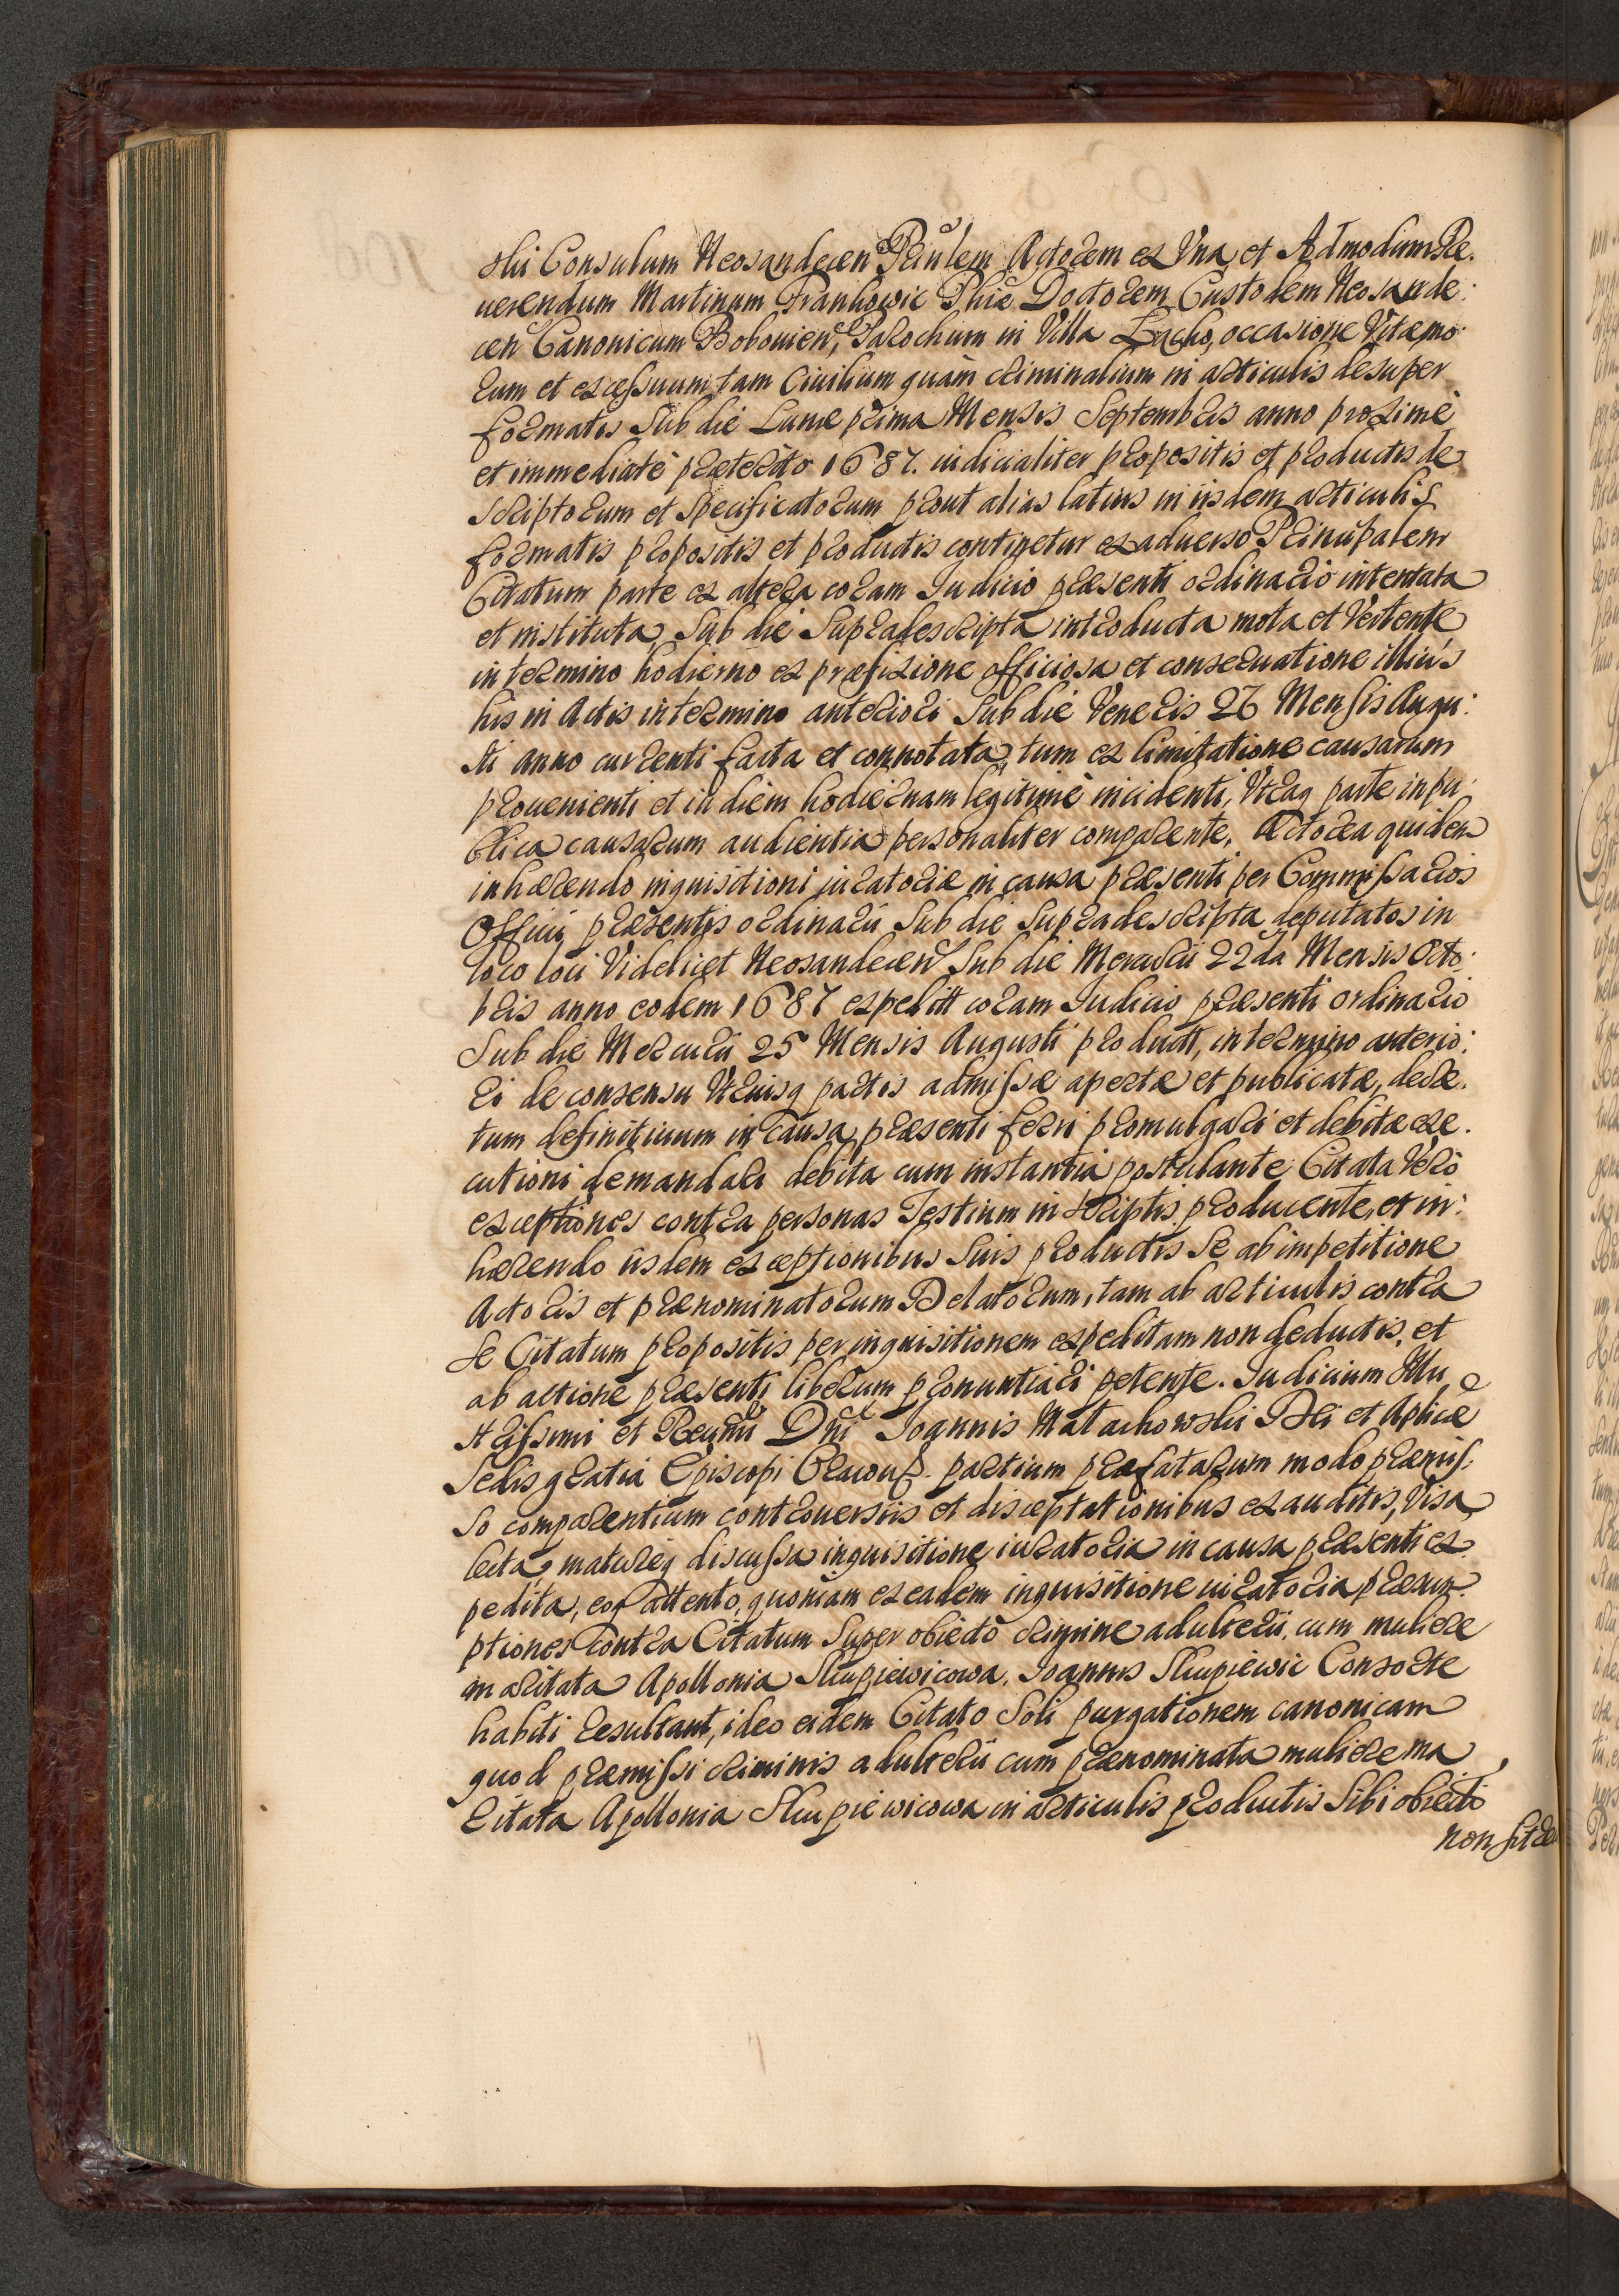 ski Consulum Neosandecen Principalem Actorem ex Una, et Admodum Re.
uerendum Martinum Frankowic Phiæ Doctorem Custodem Neosande:
cen Canonicum Bobouien, Parochum in Villa Łącko, occasione Vitæ mo
rum et excessuum tam Ciuilium quàm criminalium in articulis desuper
formatis Sub die Lunæ prima Mensis Septembris anno proximè
et immediatè præterito 1687. iudicialiter propositis et productis de
scriptorum et specificatorum prout alias latius in iisdem articulis
formatis propositis et productis continetur ex aduerso Principalem
Citatum parte ex altera coram Iudicio præsenti ordinario intentata
et instituta, Sub die Supradescripta introducta mota et Vertente
in termino hodierno ex præfixione officiosa et conseruatione illius
his in Actis in termino anteriori Sub die Veneris 26 Mensis Augu:
sti anno currenti facta et connotata, tum ex limitatione causarum
prouenienti et in diem hodiernam legitimè incidenti, Utraq parte in pu:
blica causarum audientia personaliter comparente, Actorea quidem
inhærendo inquisitioni iuratoriæ in causa præsenti per Commissarios
Officii præsentis ordinarii Sub die Supradescripta deputatos in
loco loci Videlicet Neosandecen Sub die Mercurii 22da Mensis Octo:
bris anno eodem 1687 expeditt coram Iudicio præsenti ordinario
Sub die Mercurii 25 Mensis Augusti productt, in termino anterio:
ri de consensu Utriusq partis admissæ apertæ et publicatæ, decre.
tum definitiuum in causa præsenti ferri promulgari et debitæ exe.
cutioni demandari debita cum instantia postulante; Citata Verò
exceptiones contra personas Testium in scriptis producente, et in:
hærendo iisdem exceptionibus Suis productis Se ab impetitione
Actoris et prænominatorum Delatorum, tam ab articulis contra
Se Citatum propositis per inquisitionem expeditam non deductis, et
ab actione præsenti liberum pronuntiari petente. Iudicium Illu
strissimi et Reuñni Dñi Ioannis Małachowski Dei et Aplicæ
Sedis gratia Episcopi Cracouń. partium præfatarum modo præmis:
so comparentium controuersiis et disceptationibus exauditis, Visa,
lecta, matureq discussa inquisitione iuratoria in causa præsenti ex.
pedita, eoq attento, quoniam ex eadem inquisitione iuratoria præsum
ptiones contra Citatum Super obiecto crimine adulterii, cum muliere
maritata Apollonia Skupiewicowa, Ioannis Skupiewic Consorte
habiti resultant, ideo eidem Citato Soli purgationem canonicam
quod præmissi criminis adulterii cum prænominata muliere ma
ritata Apollonia Skupiewicowa in articulis productis Sibi obiecti
non sit re